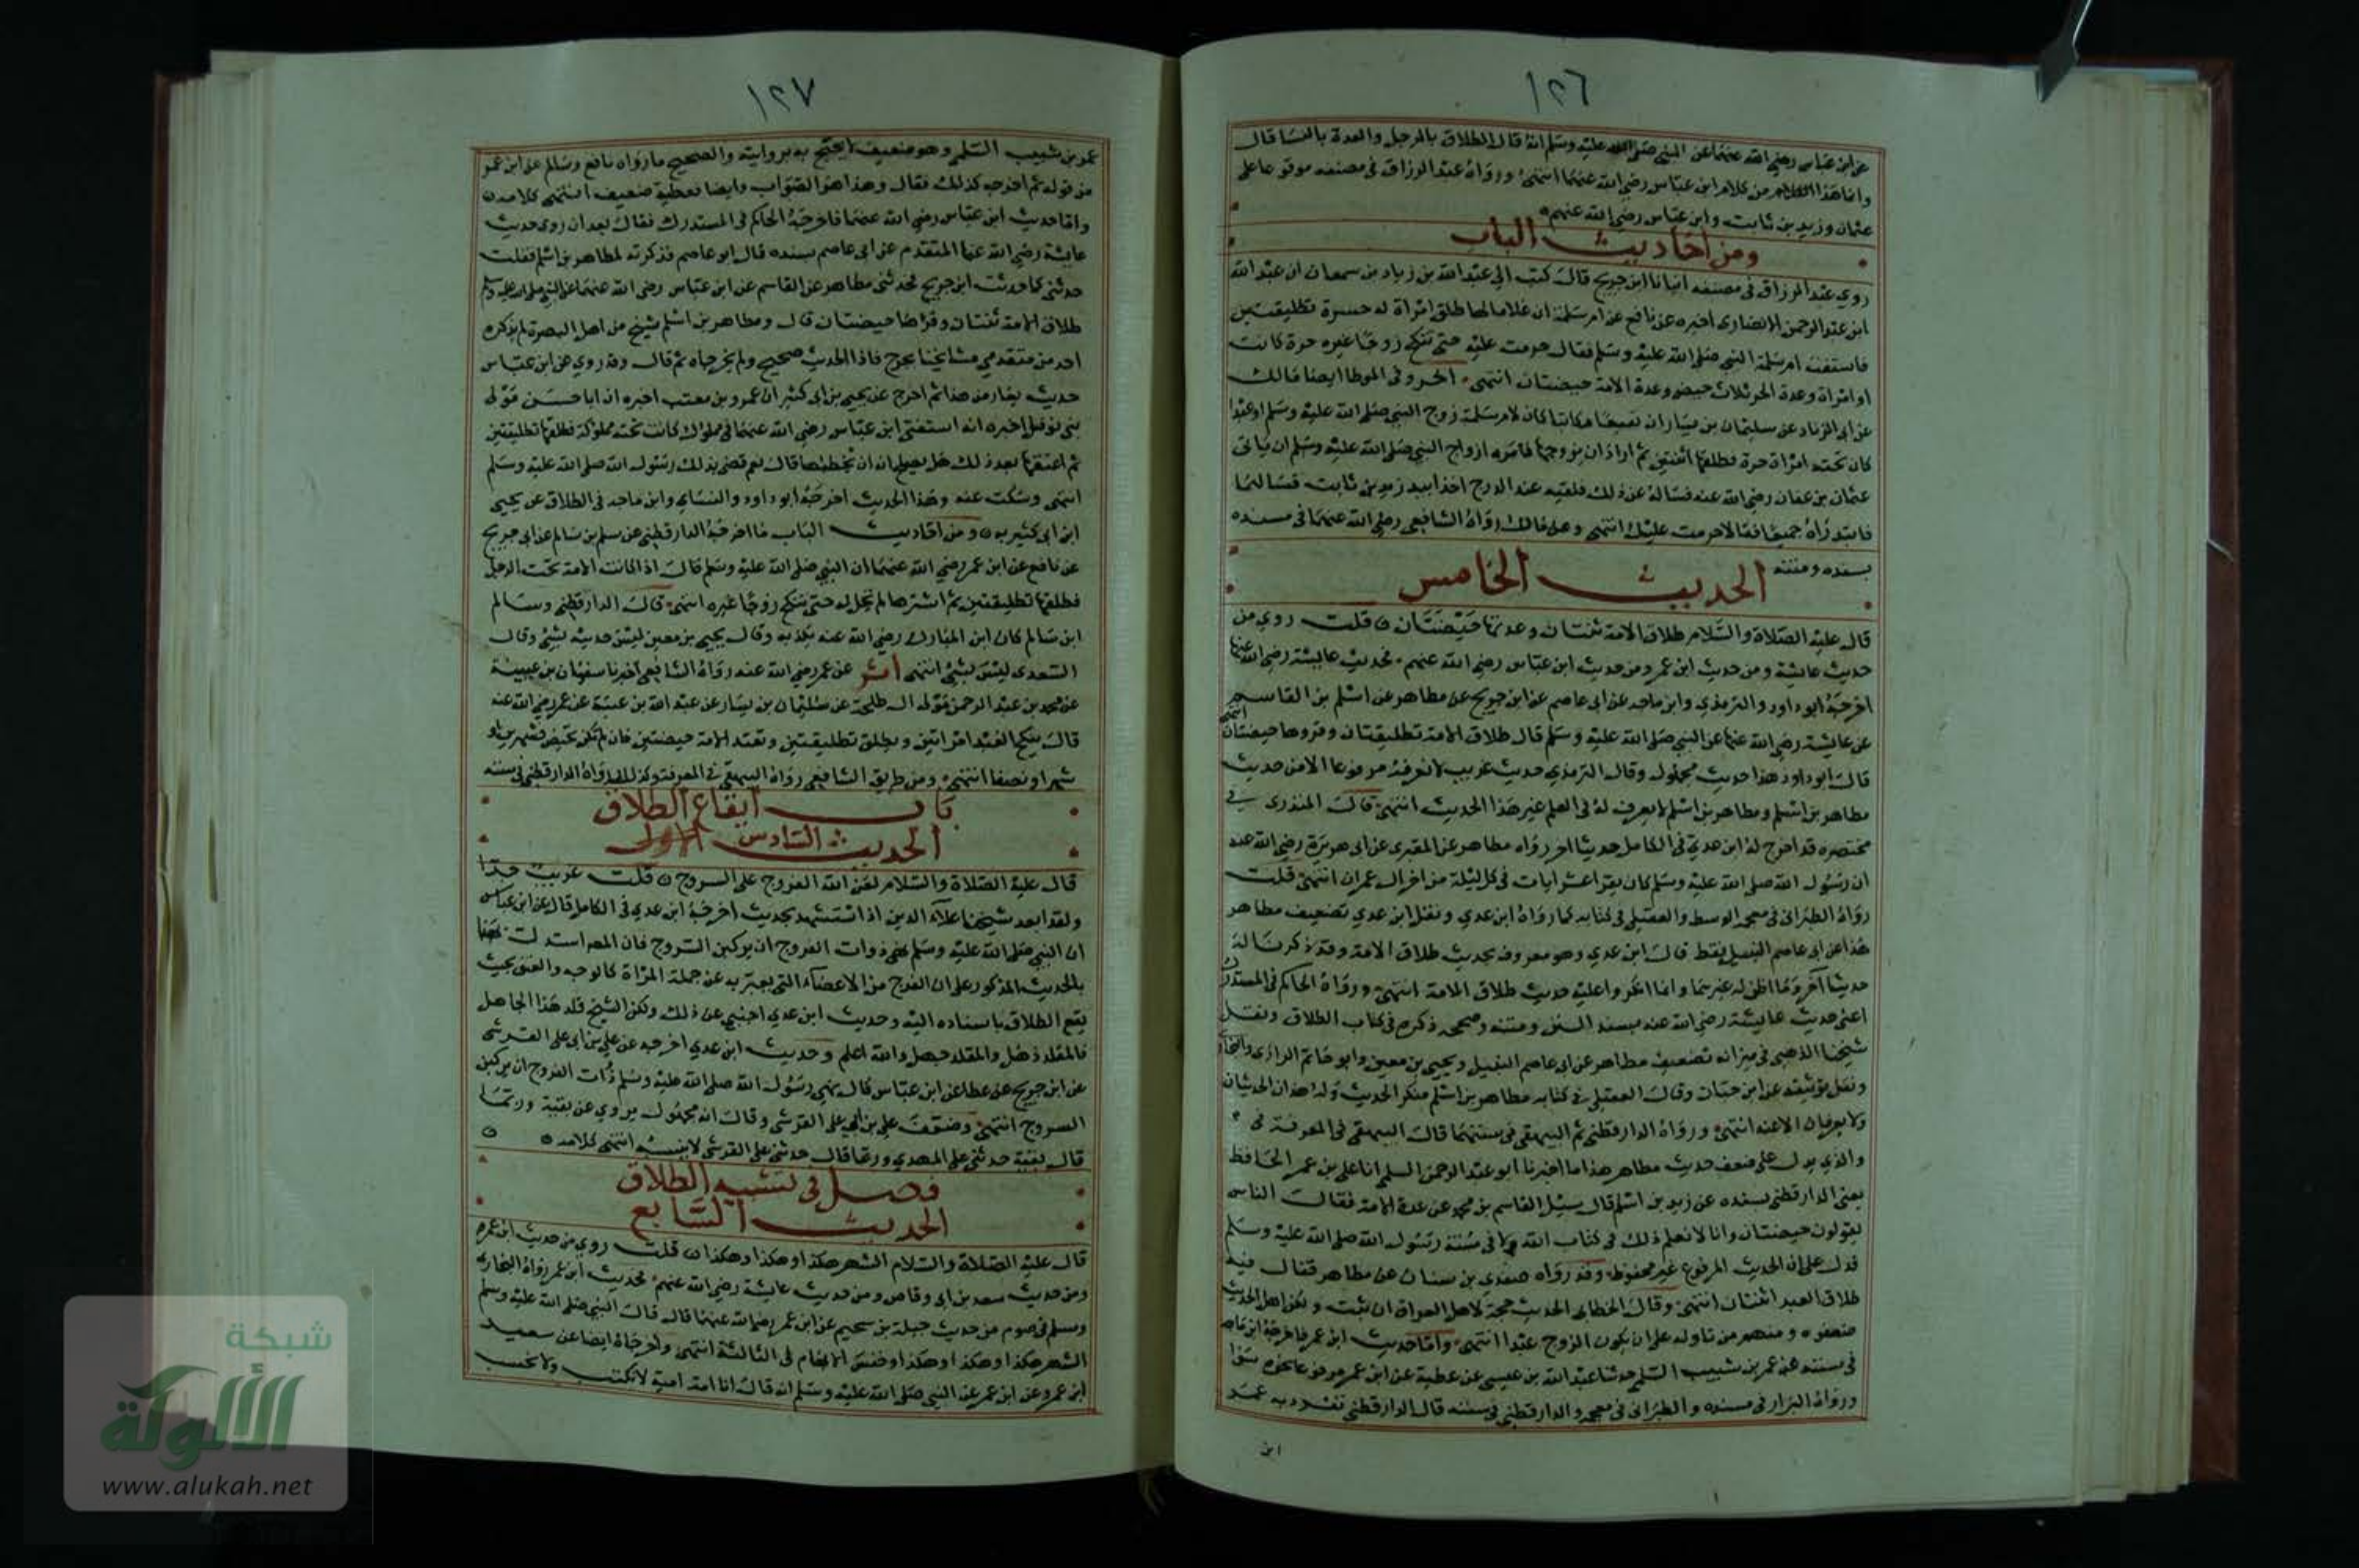 ١٢٦
عن ابن عباس رضي الله عنهما عن النبي صلى الله عليه وسلم انه قال الطلاق بالرجل والعدة بالنسا قال
وانما هذا الكلام من كلام ابن عباس رضي الله عنهما انتهى ورواه عبد الرزاق في مصنفه موقوعا على
عثمان وزيد بن ثابت وابن عباس رضي الله عنهم
ومن احاديث الباب
روى عبد الرزاق في مصنفه انبانا ابن جريج قال كتب الي عبد الله بن زياد بن سمعان ان عبد الله
ابن عبد الرحمن الانصاري اخبره عن نافع عن ام سلمة ان غلاما لها طلق امراة له حرة تطليقتين
فاستفتت ام سلمة النبي صلى الله عليه وسلم فقال حرمت عليه حتى تنكح زوجا غيره حرة كانت
او امراة وعدة الحر ثلاث حيض وعدة الامة حيضتان انتهى اخر وفي الموطا ايضا مالك
عن ابي الزناد عن سليمان بن يسار ان نفيعا مكاتبا كان لام سلمة زوج النبي صلى الله عليه وسلم او عبدا
كان تحته امراة حرة فطلقها اثنتين ثم اراد ان يزوجها فامره ازواج النبي صلى الله عليه وسلم ان ياتي
عثمان بن عفان رضي الله عنه فساله عن ذلك فلقيه عند الدرج اخذا بيد زيد بن ثابت فسالهما
فابتدراه جميعا فقالا حرمت عليك انتهى وعن مالك رواه الشافعي رضي الله عنهما في مسنده
بسنده ومتنه
الحديث الخامس
قال عليه الصلاة والسلام طلاق الامة ثنتان وعدتها حيضتان قلت روي من
حديث عايشة ومن حديث ابن عمر ومن حديث ابن عباس رضي الله عنهم فحديث عايشة رضي الله عنها
اخرجه ابو داود والترمذي وابن ماجه عن ابي عاصم عن ابن جريج عن مظاهر بن اسلم عن القاسم
عن عايشة رضي الله عنها عن النبي صلى الله عليه وسلم قال طلاق الامة تطليقتان وقروها حيضتان انتهى
قال ابو داود هذا حديث مجهول وقال الترمذي حديث غريب لا نعرفه مرفوعا الا من حديث
مظاهر بن اسلم ومظاهر بن اسلم لا يعرف له في العلم غير هذا الحديث انتهى قال المنذري في
مختصره قد اخرج له ابن عدي في الكامل حديثا اخر رواه مظاهر عن المقبري عن ابي هريرة رضي الله عنه
ان رسول الله صلى الله عليه وسلم كان يقرا عشر ايات في كل ليلة من اخر ال عمران انتهى قلت
رواه الطبراني في معجمه الوسط والعقيلي في كتابه كما رواه ابن عدي ونقل ابن عدي تضعيف مظاهر
هذا عن ابي عاصم النبيل فقط قال ابن عدي وهو معروف بحديث طلاق الامة وقد ذكرنا له
حديثا آخر وما اظن له غيرهما وانما انكروا عليه حديث طلاق الامة انتهى ورواه الحاكم في المستدرك
اعني حديث عايشة رضي الله عنه بسند السنن ومتنه وصححه ذكره في كتاب الطلاق ونقل
شيخنا الذهبي في ميزانه تضعيف مظاهر عن ابي عاصم النبيل ويحيى بن معين وابو حاتم الرازي والبخاري
ونقل توثيقه عن ابن حبان وقال العقيلي في كتابه مظاهر بن اسلم منكر الحديث وله هذان الحديثان
ولا يعرفان الا عنه انتهى ورواه الدارقطني ثم البيهقي في سننهما قال البيهقي في المعرفة
والذي يدل على ضعف حديث مظاهر هذا ما اخبرنا ابو عبد الرحمن السلمي انا علي بن عمر الحافظ
يعني الدارقطني بسنده عن زيد بن اسلم قال سيل القاسم بن محمد عن عدة الامة فقال الناس
يقولون حيضتان وانا لا نعلم ذلك في كتاب الله ولا في سنة رسول الله صلى الله عليه وسلم
فدل على ان الحديث المرفوع غير محفوظ وقد رواه صغدي بن سنان عن مظاهر فقال فيه
طلاق العبد اثنتان انتهى وقال الخطابي الحديث حجة لاهل العراق ان ثبت ولكن اهل الحديث
ضعفوه ومنهم من تاوله على ان يكون الزوج عبدا انتهى واما حديث ابن عمر فاخرجه ابن ماجه
في سننه عن عمر بن شبيب السلمي حدثنا عبد الله بن عيسى عن عطية عن ابن عمر مرفوعا نحوه سوا
ورواه البزار في مسنده والطبراني في معجمه والدارقطني في سننه قال الدارقطني تفرد به عمر
ابن
١٢٧
عمر بن شبيب السلمي وهو ضعيف لا يحتج به بروايته والصحيح ما رواه نافع وسالم عن ابن عمر
من قوله ثم اخرجه كذلك فقال وهذا هو الصواب وايضا فعطية ضعيف انتهى كلامه
واما حديث ابن عباس رضي الله عنهما فاخرجه الحاكم في المستدرك فقال بعد ان روى حديث
عايشة رضي الله عنها المتقدم عن ابي عاصم بسنده قال ابو عاصم فذكرته لمظاهر بن اسلم فقلت
حدثني كما حدثت ابن جريج فحدثني مظاهر عن القاسم عن ابن عباس رضي الله عنهما عن النبي صلى الله عليه وسلم
طلاق الامة ثنتان وقرءها حيضتان قال ومظاهر بن اسلم شيخ من اهل البصرة لم يذكره
احد من متقدمي مشايخنا بجرح فاذا الحديث صحيح ولم يخرجاه ثم قال وقد روي عن ابن عباس
حديث يعارض هذا ثم اخرج عن يحيى بن ابي كثير ان عمرو بن معتب اخبره ان ابا حسن مولى
بني نوفل اخبره انه استفتى ابن عباس رضي الله عنهما في مملوك كانت تحته مملوكة فطلقها تطليقتين
ثم اعتقها بعد ذلك هل يصلح له ان يخطبها قال نعم قضى بذلك رسول الله صلى الله عليه وسلم
انتهى وسكت عنه وهذا الحديث اخرجه ابو داود والنساي وابن ماجه في الطلاق عن يحيى
ابن ابي كثير به ومن احاديث الباب ما اخرجه الدارقطني عن سلم بن سالم عن ابن جريج
عن نافع عن ابن عمر رضي الله عنهما ان النبي صلى الله عليه وسلم قال اذا كانت الامة تحت الرجل
فطلقها تطليقتين ثم اشتراها لم تحل له حتى تنكح زوجا غيره انتهى قال الدارقطني وسالم
ابن سالم كان ابن المبارك رضي الله عنه يكذبه وقال يحيى بن معين ليس حديثه بشي وقال
السعدي ليس بشي انتهى أثر عن عمر رضي الله عنه رواه الشافعي اخبرنا سفيان بن عيينة
عن محمد بن عبد الرحمن مولى ال طلحة عن سليمان بن يسار عن عبد الله بن عتبة عن عمر رضي الله عنه
قال ينكح العبد امراتين ويطلق تطليقتين وتعتد الامة حيضتين فان لم تكن تحيض فشهرين او
شهرا ونصفا انتهى ومن طريق الشافعي رواه البيهقي في المعرفة وكذلك رواه الدارقطني في سننه
باب ايقاع الطلاق
الحديث السادس الاول
قال عليه الصلاة والسلام لعن الله الفروج على السروج قلت غريب جدا
ولقد ابعد شيخنا علآء الدين اذ استشهد بحديث اخرجه ابن عدي في الكامل قال عن ابن عباس
ان النبي صلى الله عليه وسلم نهى ذوات الفروج ان يركبن السروج فان المص استدل
بالحديث المذكور على ان الفرج من الاعضآء التي يعبر به عن جملة المراة كالوجه والعنق بحيث
يقع الطلاق باسناده اليه وحديث ابن عدي اجنبي عن ذلك ولكن الشيخ قلد هذا الجاهل
فالمقلد ذهل والمقلد جهل والله اعلم وحديث ابن عدي اخرجه عن علي بن ابي علي القرشي
عن ابن جريج عن عطا عن ابن عباس قال نهى رسول الله صلى الله عليه وسلم ذوات الفروج ان يركبن
السروج انتهى وضعف علي بن ابي علي القرشي وقال انه مجهول يروي عن بقية وربما
قال بقية حدثني علي المهدي وربما قال حدثني علي القرشي لا ينسبه انتهى كلامه
فصل في تشبيه الطلاق
الحديث السابع
قال عليه الصلاة والسلام الشهر هكذا وهكذا وهكذا قلت روي من حديث ابن عمر
ومن حديث سعد بن ابي وقاص ومن حديث عايشة رضي الله عنهم فحديث ابن عمر رواه البخاري
ومسلم في صوم من حديث جبلة بن سحيم عن ابن عمر رضي الله عنهما قال قال النبي صلى الله عليه وسلم
الشهر هكذا وهكذا وهكذا وخنس الابهام في الثالثة انتهى واخرجاه ايضا عن سعيد
ابن عمرو عن ابن عمر عن النبي صلى الله عليه وسلم انه قال انا امة امية لا نكتب ولا نحسب
شبكة
الألوكة
www.alukah.net